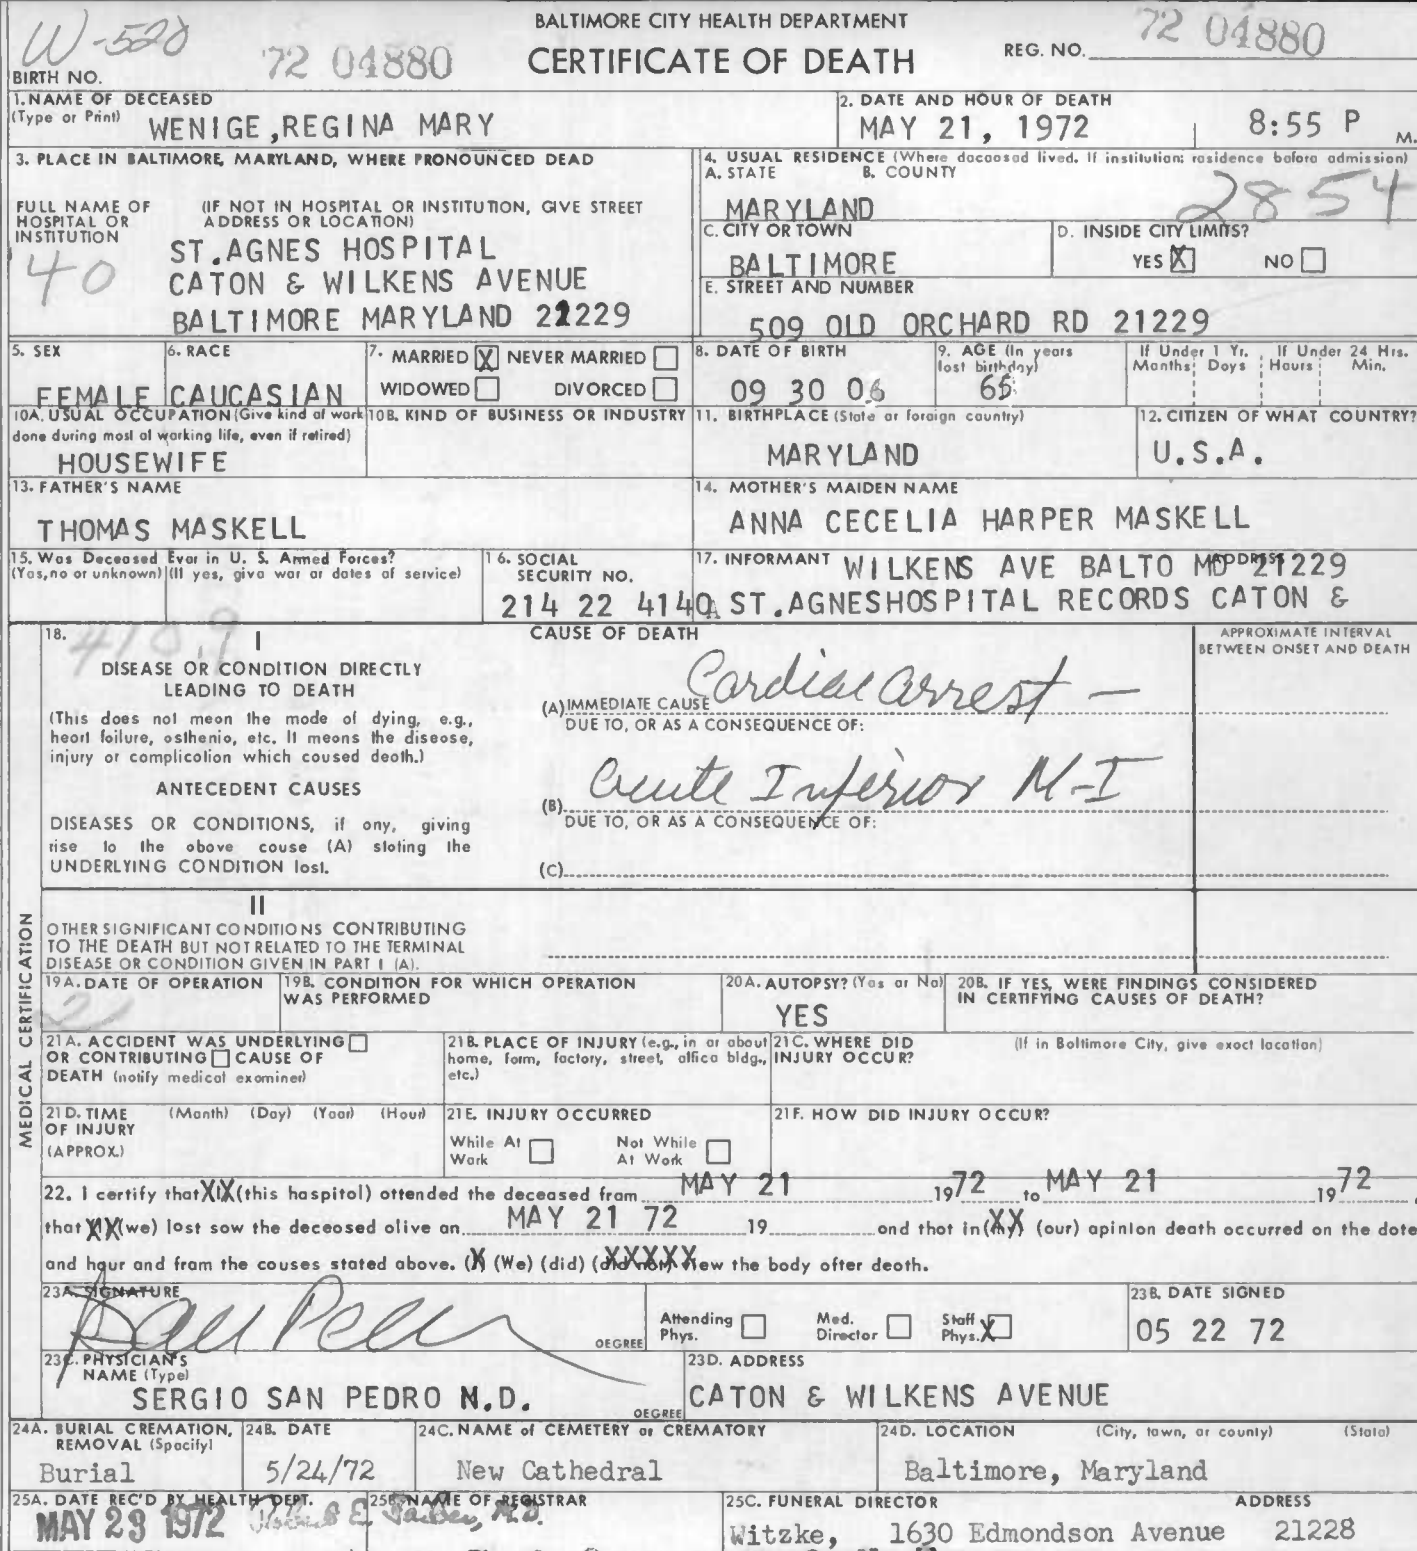 W-520
BALTIMORE CITY HEALTH DEPARTMENT
72 04880
72 04880
CERTIFICATE OF DEATH
REG. NO.
BIRTH NO.
1. NAME OF DECEASED
(Type or Print)
WENIGE, REGINA MARY
2. DATE AND HOUR OF DEATH
MAY 21, 1972 8:55 P M.
3. PLACE IN BALTIMORE, MARYLAND, WHERE PRONOUNCED DEAD
FULL NAME OF HOSPITAL OR INSTITUTION
(IF NOT IN HOSPITAL OR INSTITUTION, GIVE STREET ADDRESS OR LOCATION)
40
ST.AGNES HOSPITAL
CATON & WILKENS AVENUE
BALTIMORE MARYLAND 21229
4. USUAL RESIDENCE (Where deceased lived. If institution: residence before admission)
A. STATE B. COUNTY
2854
MARYLAND
C. CITY OR TOWN
BALTIMORE
D. INSIDE CITY LIMITS?
YES X NO
E. STREET AND NUMBER
509 OLD ORCHARD RD 21229
5. SEX
FEMALE
6. RACE
CAUCASIAN
7. MARRIED X NEVER MARRIED
WIDOWED DIVORCED
8. DATE OF BIRTH
09 30 06
9. AGE (In years last birthday)
65
If Under 1 Yr. Months Days
If Under 24 Hrs. Hours Min.
10A. USUAL OCCUPATION (Give kind of work done during most of working life, even if retired)
HOUSEWIFE
10B. KIND OF BUSINESS OR INDUSTRY
11. BIRTHPLACE (State or foreign country)
MARYLAND
12. CITIZEN OF WHAT COUNTRY?
U.S.A.
13. FATHER'S NAME
THOMAS MASKELL
14. MOTHER'S MAIDEN NAME
ANNA CECELIA HARPER MASKELL
15. Was Deceased Ever in U. S. Armed Forces?
(Yes, no or unknown) (If yes, give war or dates of service)
16. SOCIAL SECURITY NO.
214 22 4140
17. INFORMANT ADDRESS
WILKENS AVE BALTO MD 21229
ST.AGNESHOSPITAL RECORDS CATON &
18.
410.9
I
CAUSE OF DEATH
APPROXIMATE INTERVAL BETWEEN ONSET AND DEATH
DISEASE OR CONDITION DIRECTLY LEADING TO DEATH
(This does not mean the mode of dying, e.g., heart failure, asthenia, etc. It means the disease, injury or complication which caused death.)
(A) IMMEDIATE CAUSE Cardiac arrest -
DUE TO, OR AS A CONSEQUENCE OF:
ANTECEDENT CAUSES
DISEASES OR CONDITIONS, if any, giving rise to the above cause (A) stating the UNDERLYING CONDITION last.
(B) Acute Inferior M-I
DUE TO, OR AS A CONSEQUENCE OF:
(C)
MEDICAL CERTIFICATION
II
OTHER SIGNIFICANT CONDITIONS CONTRIBUTING TO THE DEATH BUT NOT RELATED TO THE TERMINAL DISEASE OR CONDITION GIVEN IN PART I (A).
19A. DATE OF OPERATION
19B. CONDITION FOR WHICH OPERATION WAS PERFORMED
20A. AUTOPSY? (Yes or No)
YES
20B. IF YES, WERE FINDINGS CONSIDERED IN CERTIFYING CAUSES OF DEATH?
21A. ACCIDENT WAS UNDERLYING OR CONTRIBUTING CAUSE OF DEATH (notify medical examiner)
21B. PLACE OF INJURY (e.g., in or about home, farm, factory, street, office bldg., etc.)
21C. WHERE DID INJURY OCCUR?
(If in Baltimore City, give exact location)
21D. TIME OF INJURY (APPROX.)
(Month) (Day) (Year) (Hour)
21E. INJURY OCCURRED
While At Work Not While At Work
21F. HOW DID INJURY OCCUR?
22. I certify that XIX (this hospital) attended the deceased from MAY 21 1972 to MAY 21 1972,
that XIX (we) last saw the deceased alive on MAY 21 72 19 and that in (my) (our) opinion death occurred on the date
and hour and from the causes stated above. (X) (We) (did) (did not) view the body after death.
23A. SIGNATURE
DEGREE
Attending Phys. Med. Director Staff Phys. X
23B. DATE SIGNED
05 22 72
23C. PHYSICIAN'S NAME (Type)
SERGIO SAN PEDRO M.D.
DEGREE
23D. ADDRESS
CATON & WILKENS AVENUE
24A. BURIAL CREMATION, REMOVAL (Specify)
Burial
24B. DATE
5/24/72
24C. NAME of CEMETERY or CREMATORY
New Cathedral
24D. LOCATION (City, town, or county) (State)
Baltimore, Maryland
25A. DATE REC'D BY HEALTH DEPT.
MAY 23 1972
25B. NAME OF REGISTRAR
Robert E. Farber, M.D.
25C. FUNERAL DIRECTOR ADDRESS
Witzke, 1630 Edmondson Avenue 21228